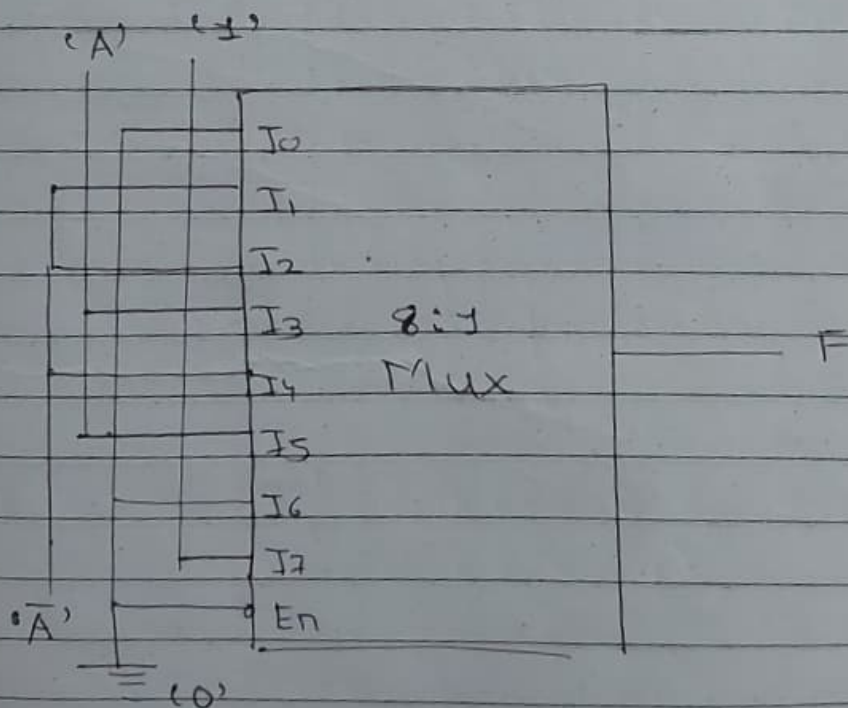 'A' '1'
I0
I1
I2
I3 8:1
F
I4 Mux
I5
I6
I7
'Ā' En
'0'